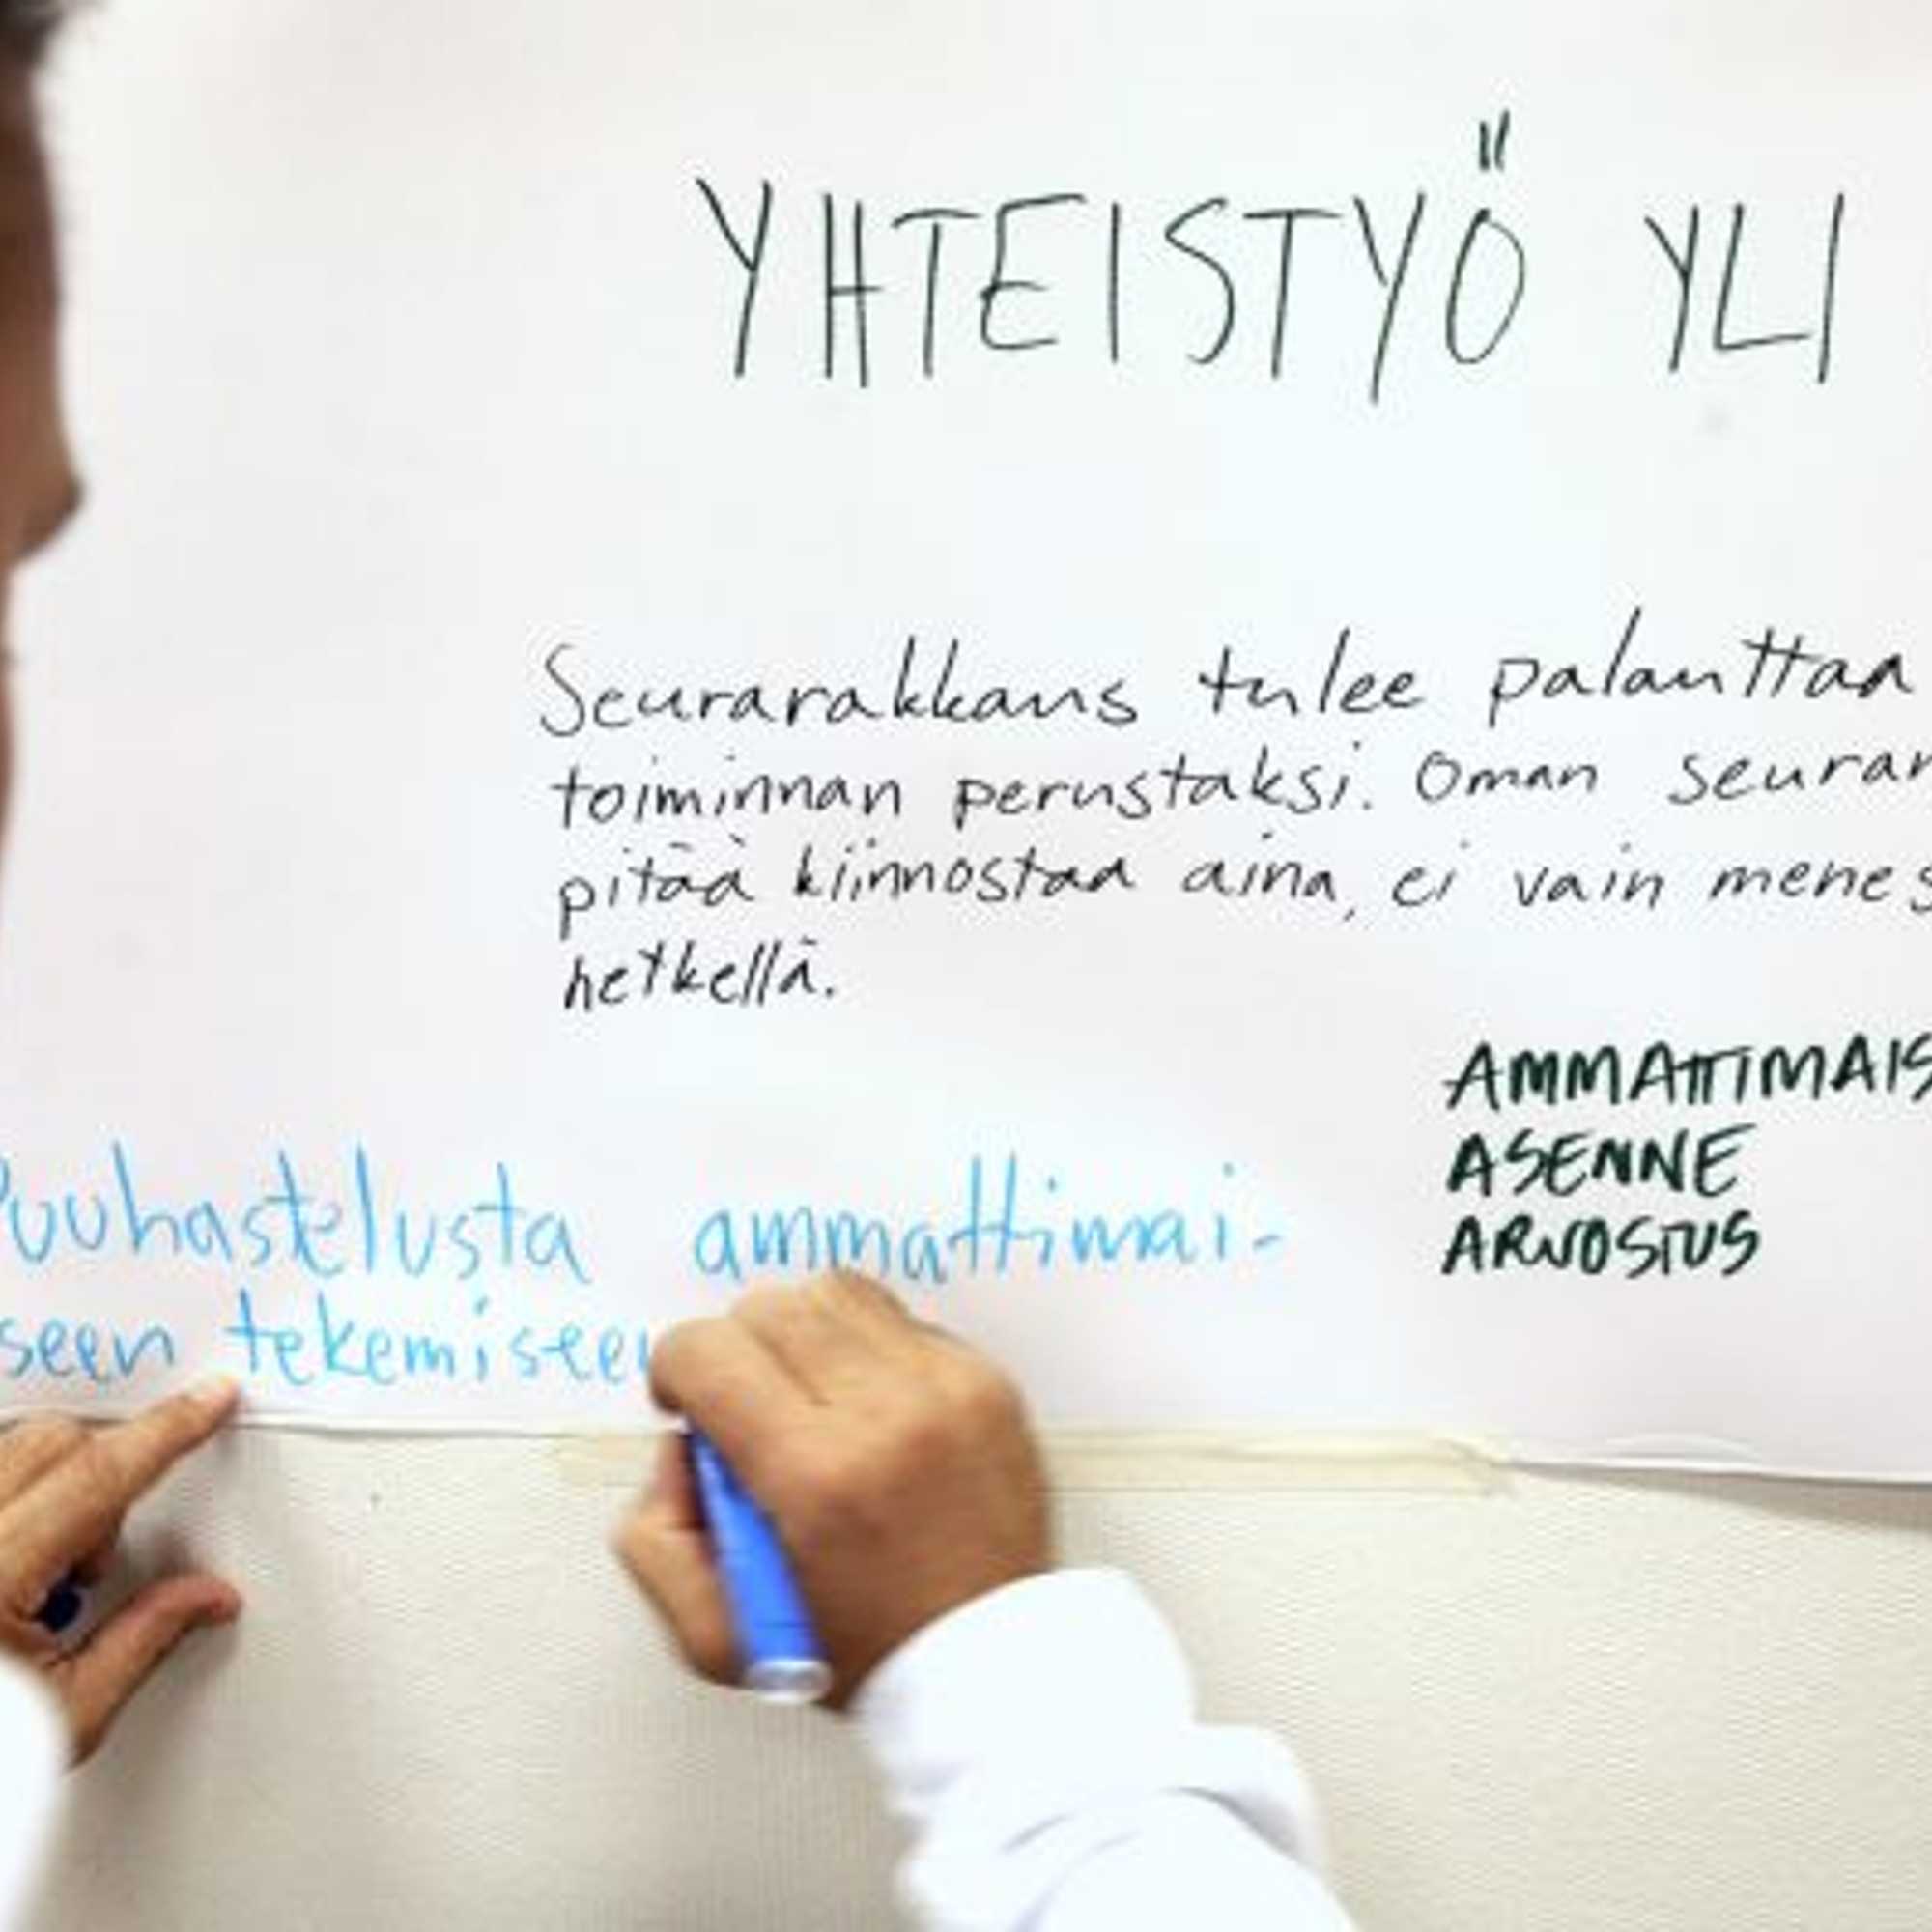 YHTEISTYÖ YLI
Seurarakkaus tulee palauttaa
toiminnan perustaksi. Oman seuran
pitää kiinnostaa aina, ei vain menes
hetkellä.
AMMATTIMAIS
ASENNE
ARVOSTUS
Puuhastelusta ammattimai-
seen tekemiseen